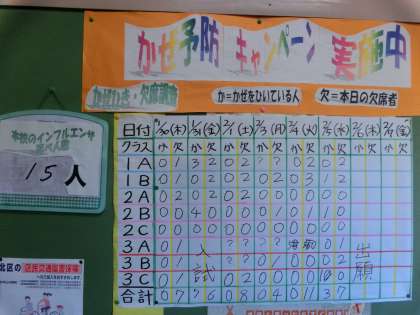 かぜ予防 キャンペーン 実施中
かぜひき・欠席調査 か=かぜをひいている人 欠=本日の欠席者
本校のインフルエンザ
15人
日付 1/30(木) 1/31(金) 2/1(土) 2/3(月) 2/4(火) 2/5(水) 2/6(木) 2/7(金)
クラス か 欠 か 欠 か 欠 か 欠 か 欠 か 欠 か 欠 か 欠
1A 0 1 3 2 0 2 ? ? 0 2 0 2
1B 0 1 0 2 0 2 0 2 0 3 1 2
2A 0 2 0 2 0 0 0 0 0 0 0 0
2B 0 0 4 0 0 0 0 1 0 1 1 0
2C 0 0 0 0 0 0 0 0 0 0 0 0
3A 0 1 入試 ? ? ? ? 0 1 出願
3B 0 1 ? ? 0 1 0 0 0 2
3C 0 1 0 2 0 0 0 0
合計 0 7 7 6 0 8 0 4 0 11 3 7
北区の区民交通傷害保険